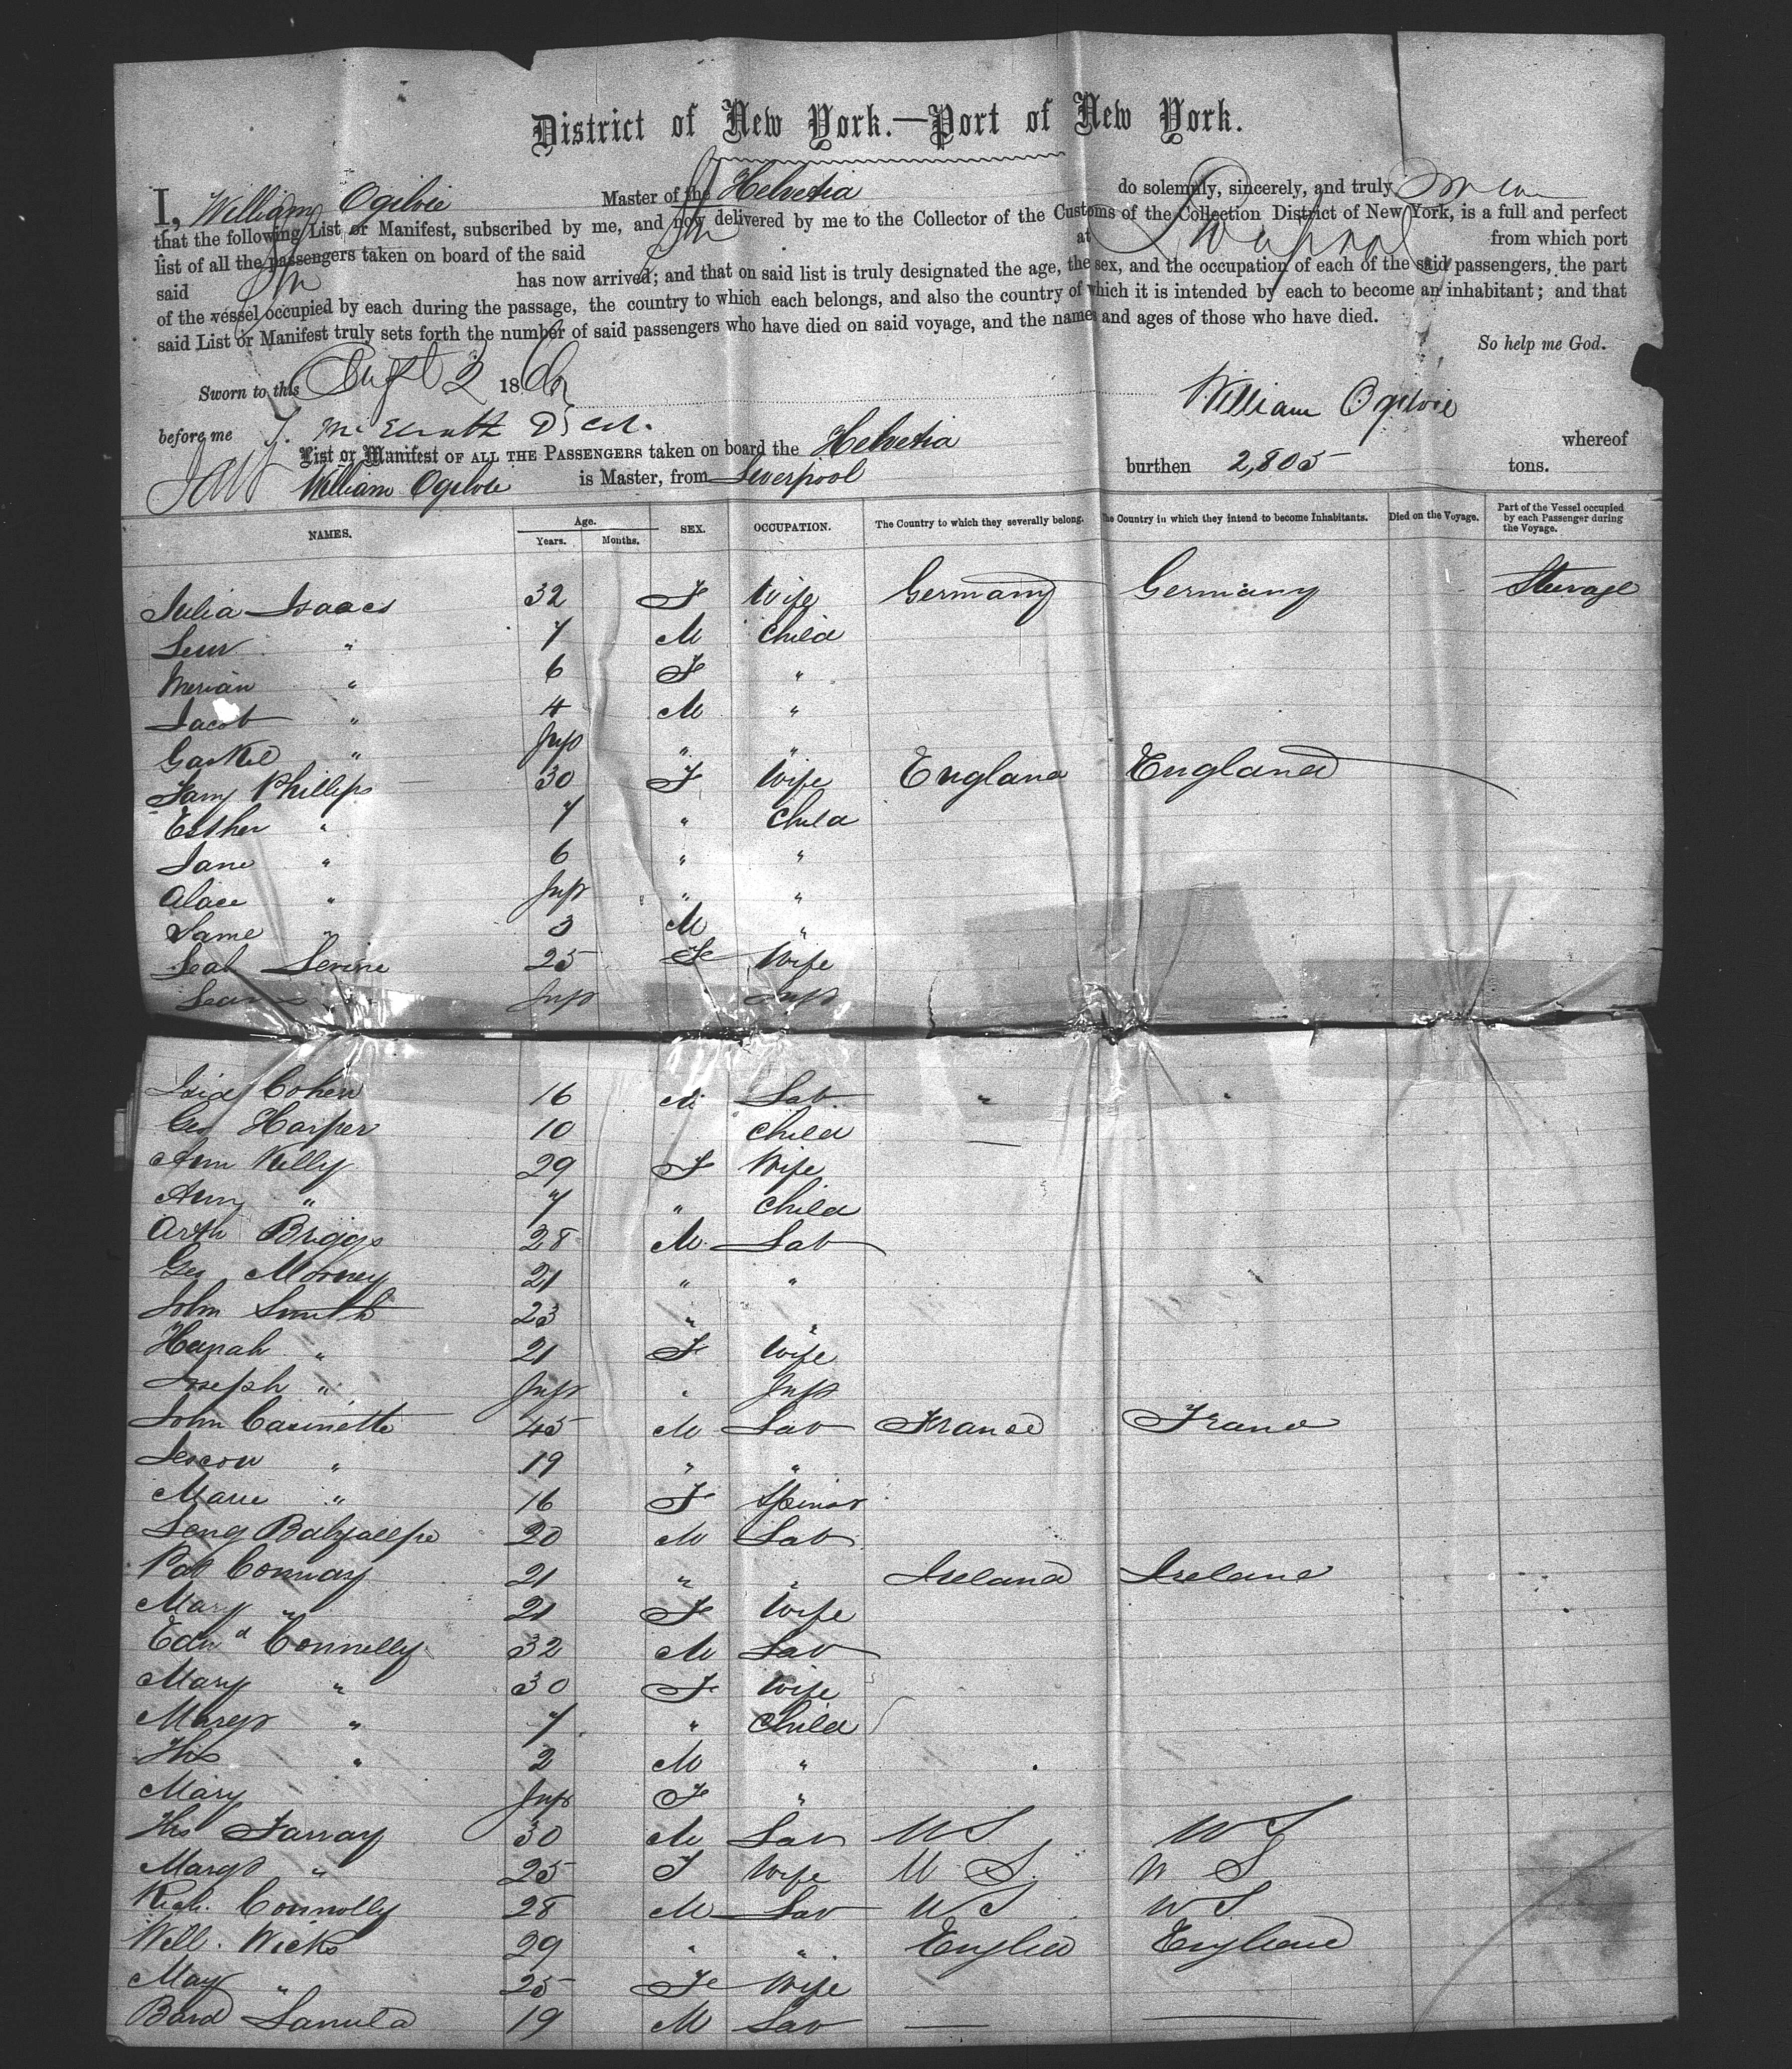 District of New York.—Port of New York.
I, William Ogilvie Master of the Helvetia do solemnly, sincerely, and truly
that the following List or Manifest, subscribed by me, and now delivered by me to the Collector of the Customs of the Collection District of New York, is a full and perfect
list of all the passengers taken on board of the said at Liverpool from which port
said has now arrived; and that on said list is truly designated the age, the sex, and the occupation of each of the said passengers, the part
of the vessel occupied by each during the passage, the country to which each belongs, and also the country of which it is intended by each to become an inhabitant; and that
said List or Manifest truly sets forth the number of said passengers who have died on said voyage, and the names and ages of those who have died.
So help me God.
Sworn to this Sept 3 1866
William Ogilvie
before me
List or Manifest OF ALL THE PASSENGERS taken on board the Helvetia whereof
William Ogilvie is Master, from Liverpool burthen 2,805 tons.
NAMES. Age. Years. Months. SEX. OCCUPATION. The Country to which they severally belong. The Country in which they intend to become Inhabitants. Died on the Voyage. Part of the Vessel occupied by each Passenger during the Voyage.
Julia Isaacs 32 F Wife Germany Germany Steerage
" 7 M Child
Merian " 6 F "
Jacob " 4 M "
" Inf " "
Fany Phillips 30 F Wife England England
Esther " 7 " Child
Jane " 6 " "
Alace " Inf " "
Same " 3 M "
Leah Levine 25 F Wife
Inf Inf
Cohen 16 M Lab " "
Geo Harper 10 Child
Ann Kelly 29 F Wife
Anny " 7 " Child
Arth Briggs 28 M Lab
Geo Morney 21 " "
John Smith 23 " "
Hanah " 21 F Wife
Joseph " Inf " Inf
John Carinette 45 M Lab France France
" 19 " "
Marie " 16 F Spinsr
20 M Lab
Pat Conway 21 " " Ireland Ireland
Mary " 21 F Wife
Edwd Connelly 32 M Lab
Mary " 30 F Wife
Margt " 7 " Child
Ths " 2 M "
Mary Inf F "
Ths Farray 30 M Lab U S U S
Margt " 25 F Wife U S U S
Rich. Connolly 28 M Lab U S U S
Will. Wicks 29 " " England England
May " 25 F Wife
19 M Lab